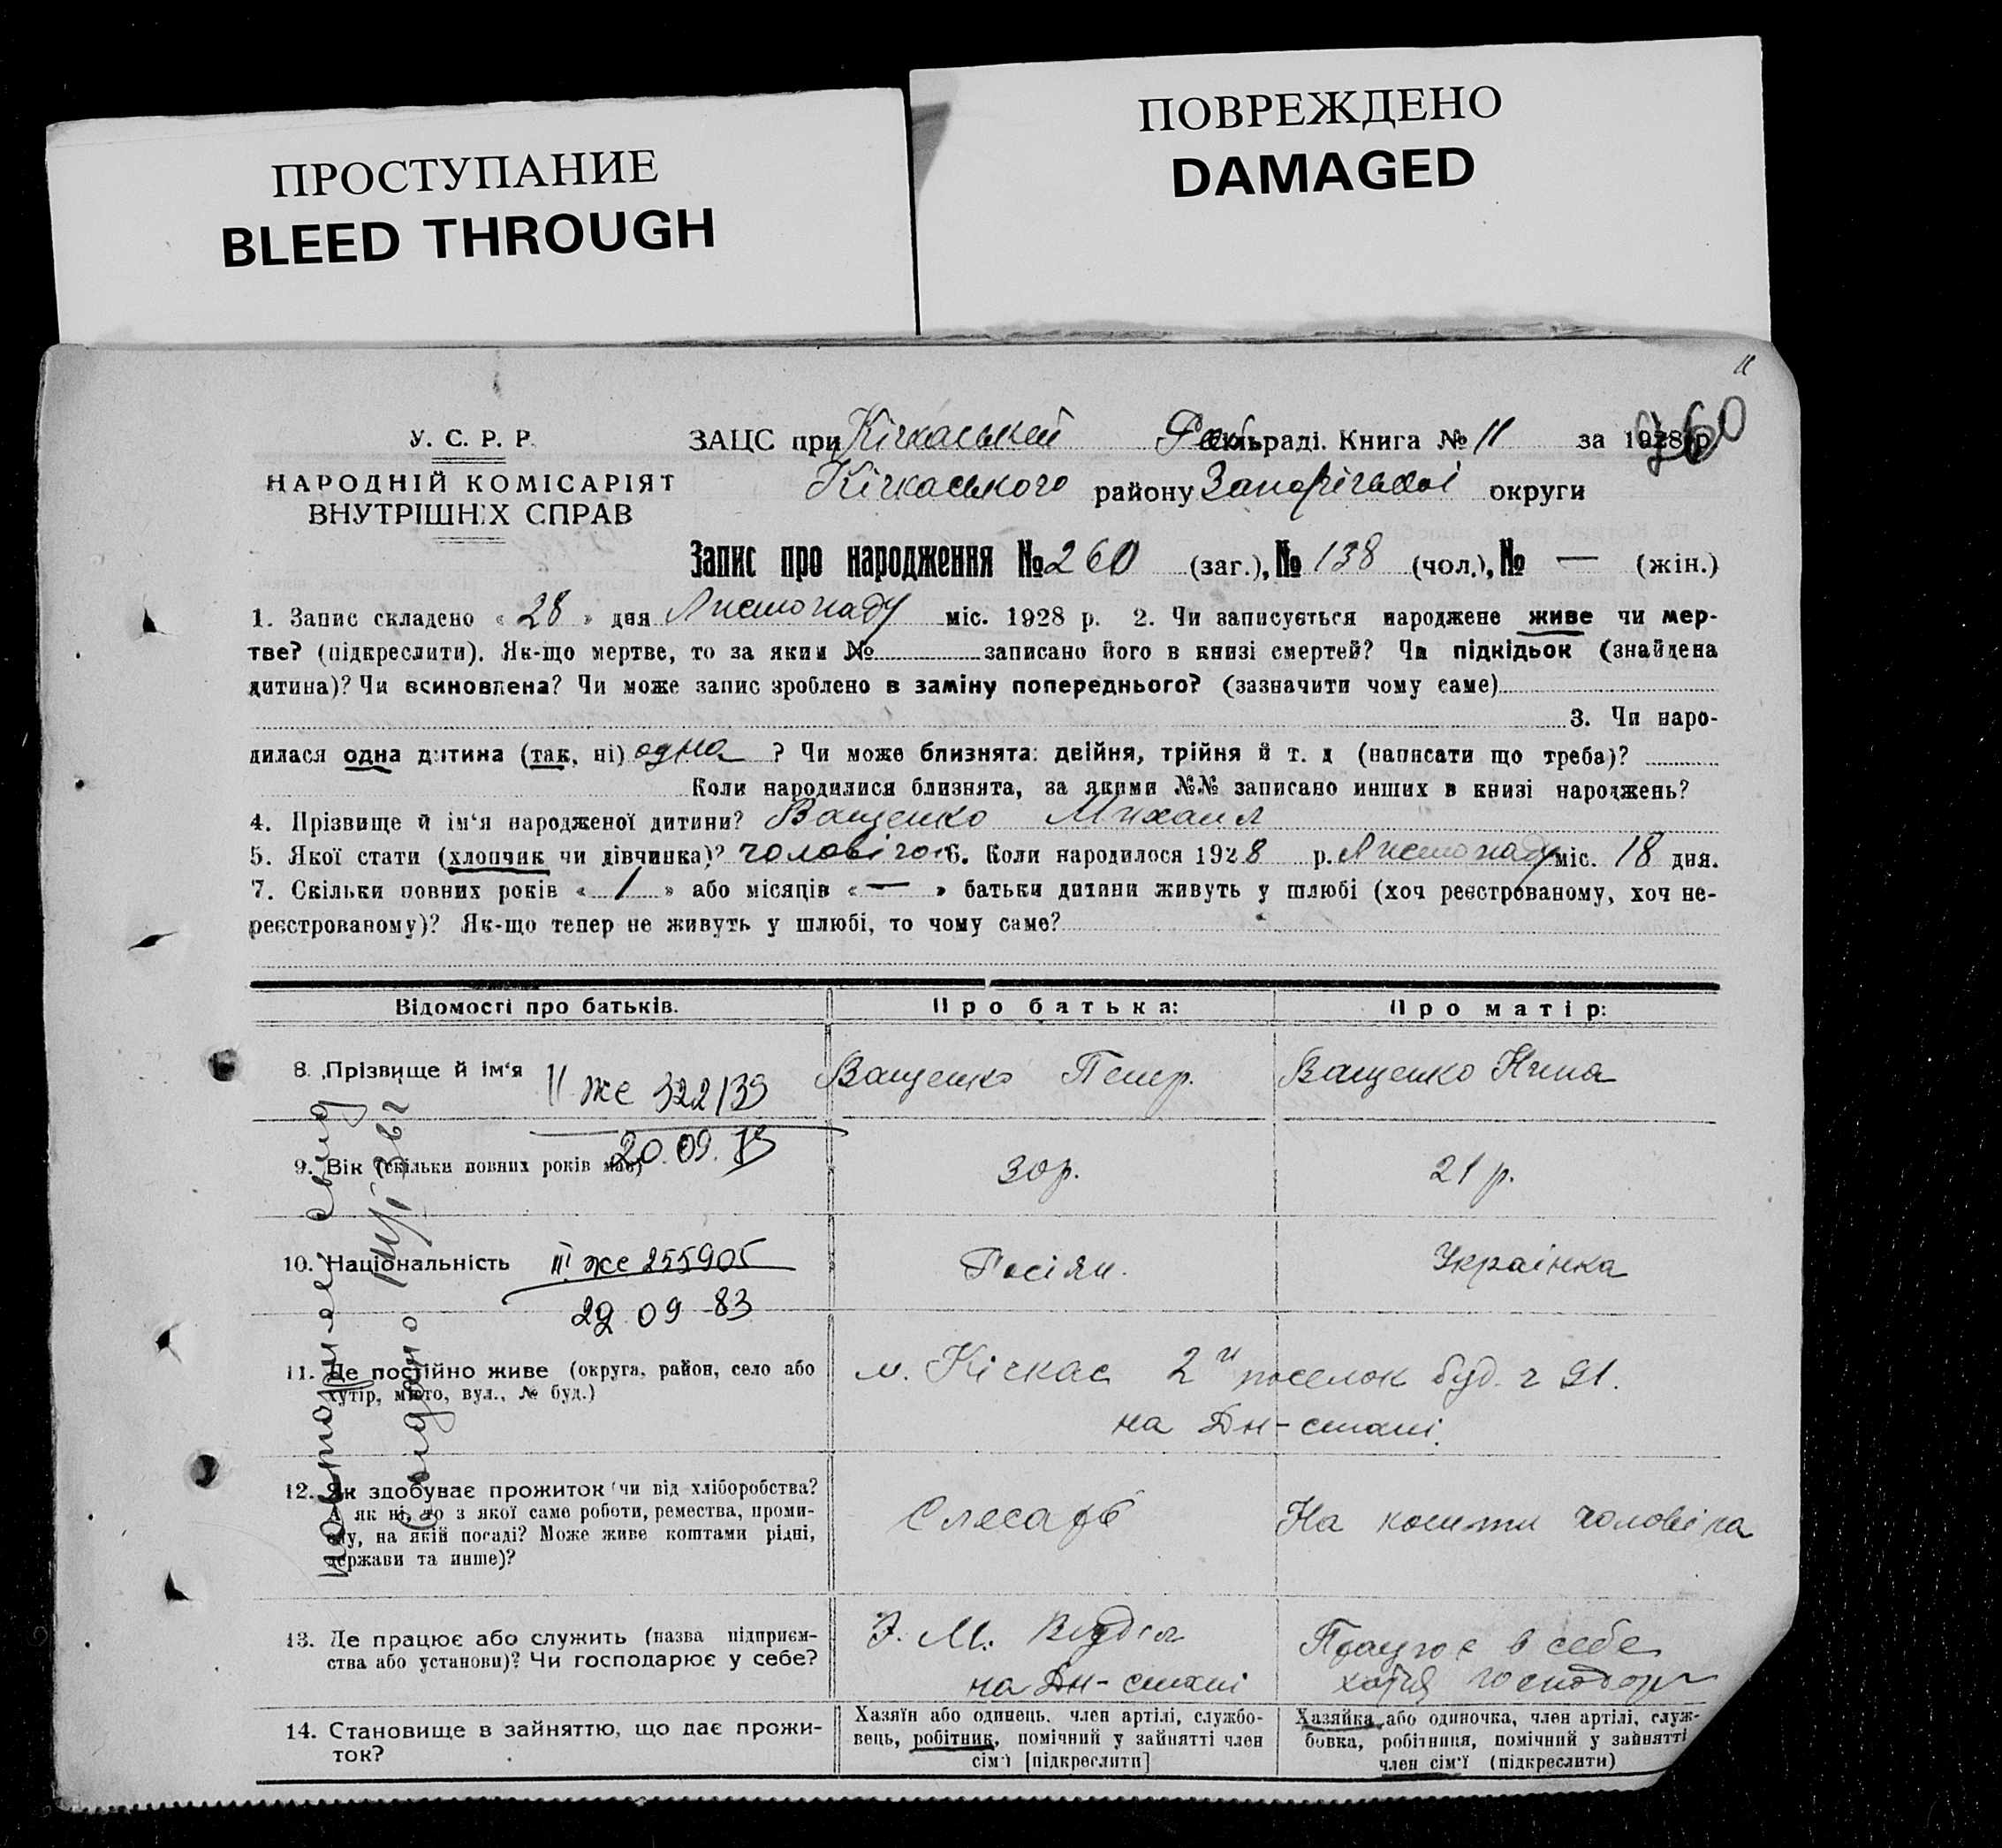 ПРОСТУПАНИЕ
BLEED THROUGH
ПОВРЕЖДЕНО
DAMAGED
У. С. Р. Р.
НАРОДНІЙ КОМІСАРІЯТ
ВНУТРІШНІХ СПРАВ
ЗАЦС при Кічкаській раді. Книга № 11 за 1928 р.
260
Кічкаського району Запорізької округи
Запис про народження № 260 (заг.), № 138 (чол.), № — (жін.)
1. Запис складено « 28 » дня Листопаду міс. 1928 р. 2. Чи записується народжене живе чи мер-
тве? (підкреслити). Як-що мертве, то за яким № записано його в книзі смертей? Чи підкідьок (знайдена
дитина)? Чи всиновлена? Чи може запис зроблено в заміну попереднього? (зазначити чому саме)
3. Чи наро-
дилася одна дитина (так, ні) одна ? Чи може близнята: двійня, трійня й т. д (написати що треба)?
Коли народилися близнята, за якими №№ записано инших в книзі народжень?
4. Прізвище й ім'я народженої дитини? Ващенко Михаил
5. Якої стати (хлопчик чи дівчинка)? чоловічої 6. Коли народилося 1928 р. Листопаду міс. 18 дня.
7. Скільки повних років « 1 » або місяців « — » батьки дитини живуть у шлюбі (хоч реєстрованому, хоч не-
реєстрованому)? Як-що тепер не живуть у шлюбі, то чому саме?
Відомості про батьків. Про батька: Про матір:
8. Прізвище й ім'я Ващенко Петр. Ващенко Нина
II же 322139
20.09.73
9. Вік (скільки повних років має) 30 р. 21 р.
10. Національність Росіян. Українка
III же 255905
29 09 83
11. Де постійно живе (округа, район, село або
хутір, місто, вул., № буд.)
м. Кічкас 2й поселок буд. ч 91.
на Дн-стані.
12. Як здобуває прожиток (чи від хліборобства?
А як ні, то з якої саме роботи, ремества, проми-
слу, на якій посаді? Може живе коштами рідні,
держави та инше)?
Слесарь На кошти чоловіка
13. Де працює або служить (назва підприєм-
ства або установи)? Чи господарює у себе?
на Дн-стані
Працює в себе
14. Становище в зайняттю, що дає прожи-
ток?
Хазяїн або одинець, член артілі, службо-
вець, робітник, помічний у зайнятті член
сім'ї [підкреслити]
Хазяйка або одиночка, член артілі, служ-
бовка, робітниця, помічний у зайнятті
член сім'ї (підкреслити)